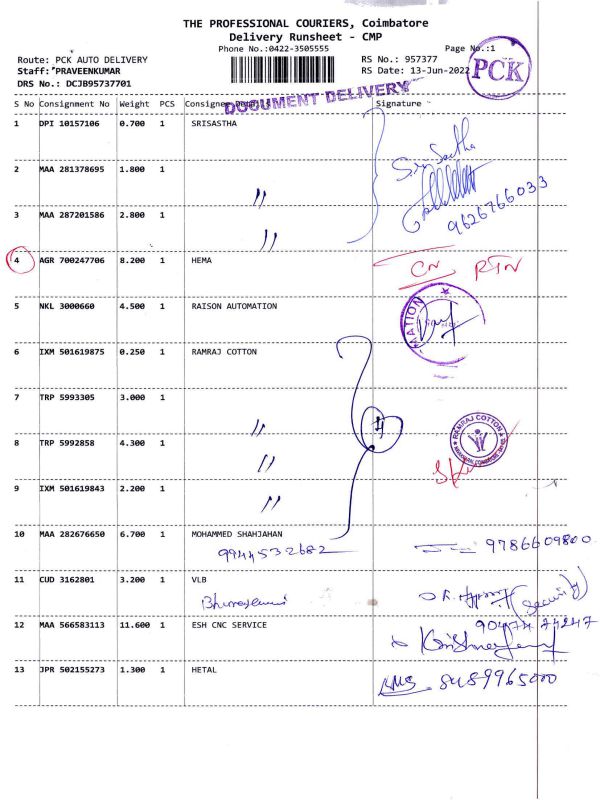 THE PROFESSIONAL COURIERS, Coimbatore
Delivery Runsheet - CMP
Phone No.:0422-3505555
Page No.:1
Route: PCK AUTO DELIVERY
RS No.: 957377
Staff: PRAVEENKUMAR
RS Date: 13-Jun-2022
PCK
DRS No.: DCJB95737701
DOCUMENT DELIVERY
S No Consignment No Weight PCS Consignee Signature
1 DPI 10157106 0.700 1 SRISASTHA
Sri Sastha
2 MAA 281378695 1.800 1 "
9626766033
3 MAA 287201586 2.800 1 "
4 AGR 700247706 8.200 1 HEMA CN RTN
5 NKL 3000660 4.500 1 RAISON AUTOMATION
MATION
6 IXM 501619875 0.250 1 RAMRAJ COTTON
7 TRP 5993305 3.000 1 "
4
RAMRAJ COTTON
8 TRP 5992858 4.300 1 "
9 IXM 501619843 2.200 1 "
10 MAA 282676650 6.700 1 MOHAMMED SHAHJAHAN
9944532682 9786609800
11 CUD 3162801 3.200 1 VLB
(Security)
12 MAA 566583113 11.600 1 ESH CNC SERVICE
90474 74247
13 JPR 502155273 1.300 1 HETAL
8489965000